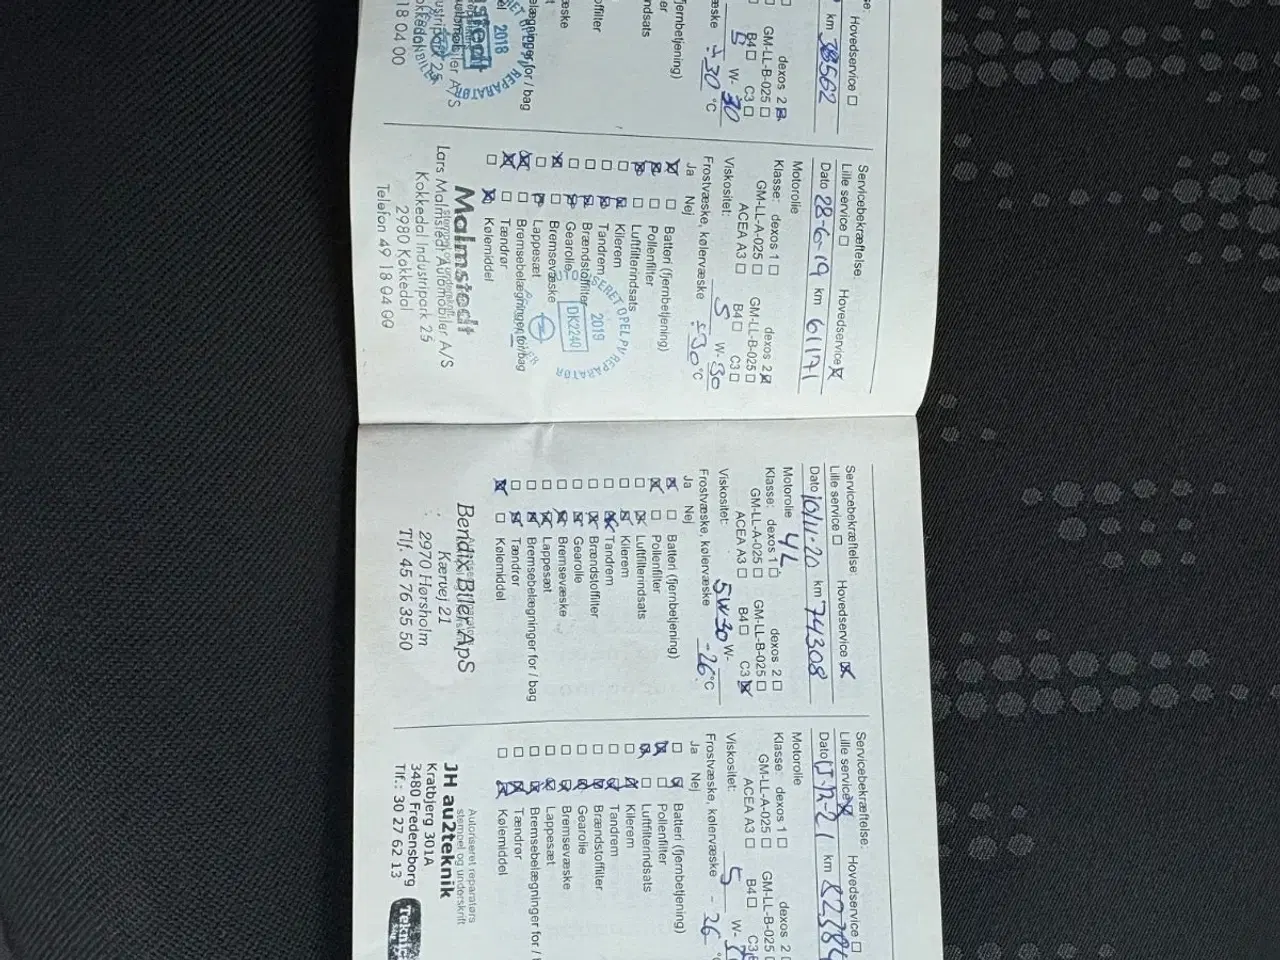 Hovedservice
km 38562
dexos 2
GM-LL-B-025
B4 C3
5 W- 30
÷ 30 °C
(fjernbetjening)
bag
2018
REPARATØR
18 04 00
Servicebekræftelse:
Lille service Hovedservice
Dato 28-6-19 km 61171
Motorolie
Klasse: dexos 1 dexos 2
GM-LL-A-025 GM-LL-B-025
ACEA A3 B4 C3
Viskositet: 5 W- 30
Frostvæske, kølervæske ÷30 °C
Ja Nej
Batteri (fjernbetjening)
Pollenfilter
Luftfilterindsats
Kilerem
Tandrem
Brændstoffilter
Gearolie
Bremsevæske
Lappesæt
Bremsebelægninger for/bag
Tændrør
Kølemiddel
2019
DK2240
REPARATØR
Malmstedt
Lars Malmstedt Automobiler A/S
Kokkedal Industripark 25
2980 Kokkedal
Telefon 49 18 04 00
Servicebekræftelse:
Lille service Hovedservice
Dato 10/11-20 km 74308
Motorolie 4L
Klasse: dexos 1 dexos 2
GM-LL-A-025 GM-LL-B-025
ACEA A3 B4 C3
Viskositet: 5W30 W-
Frostvæske, kølervæske -26 °C
Ja Nej
Batteri (fjernbetjening)
Pollenfilter
Luftfilterindsats
Kilerem
Tandrem
Brændstoffilter
Gearolie
Bremsevæske
Lappesæt
Bremsebelægninger for / bag
Tændrør
Kølemiddel
Bendix Biler ApS
Kærvej 21
2970 Hørsholm
Tlf. 45 76 35 50
Servicebekræftelse:
Lille service Hovedservice
Dato km
Motorolie
Klasse dexos 1 dexos 2
GM-LL-A-025 GM-LL-B-025
ACEA A3 B4 C3
Viskositet: 5 W-
Frostvæske, kølervæske - 26
Ja Nej
Batteri (fjernbetjening)
Pollenfilter
Luftfilterindsats
Kilerem
Tandrem
Brændstoffilter
Gearolie
Bremsevæske
Lappesæt
Bremsebelægninger for /
Tændrør
Kølemiddel
Autoriseret reparatørs
stempel og underskrift
JH au2teknik
Kratbjerg 301A
3480 Fredensborg
Tlf.: 30 27 62 13